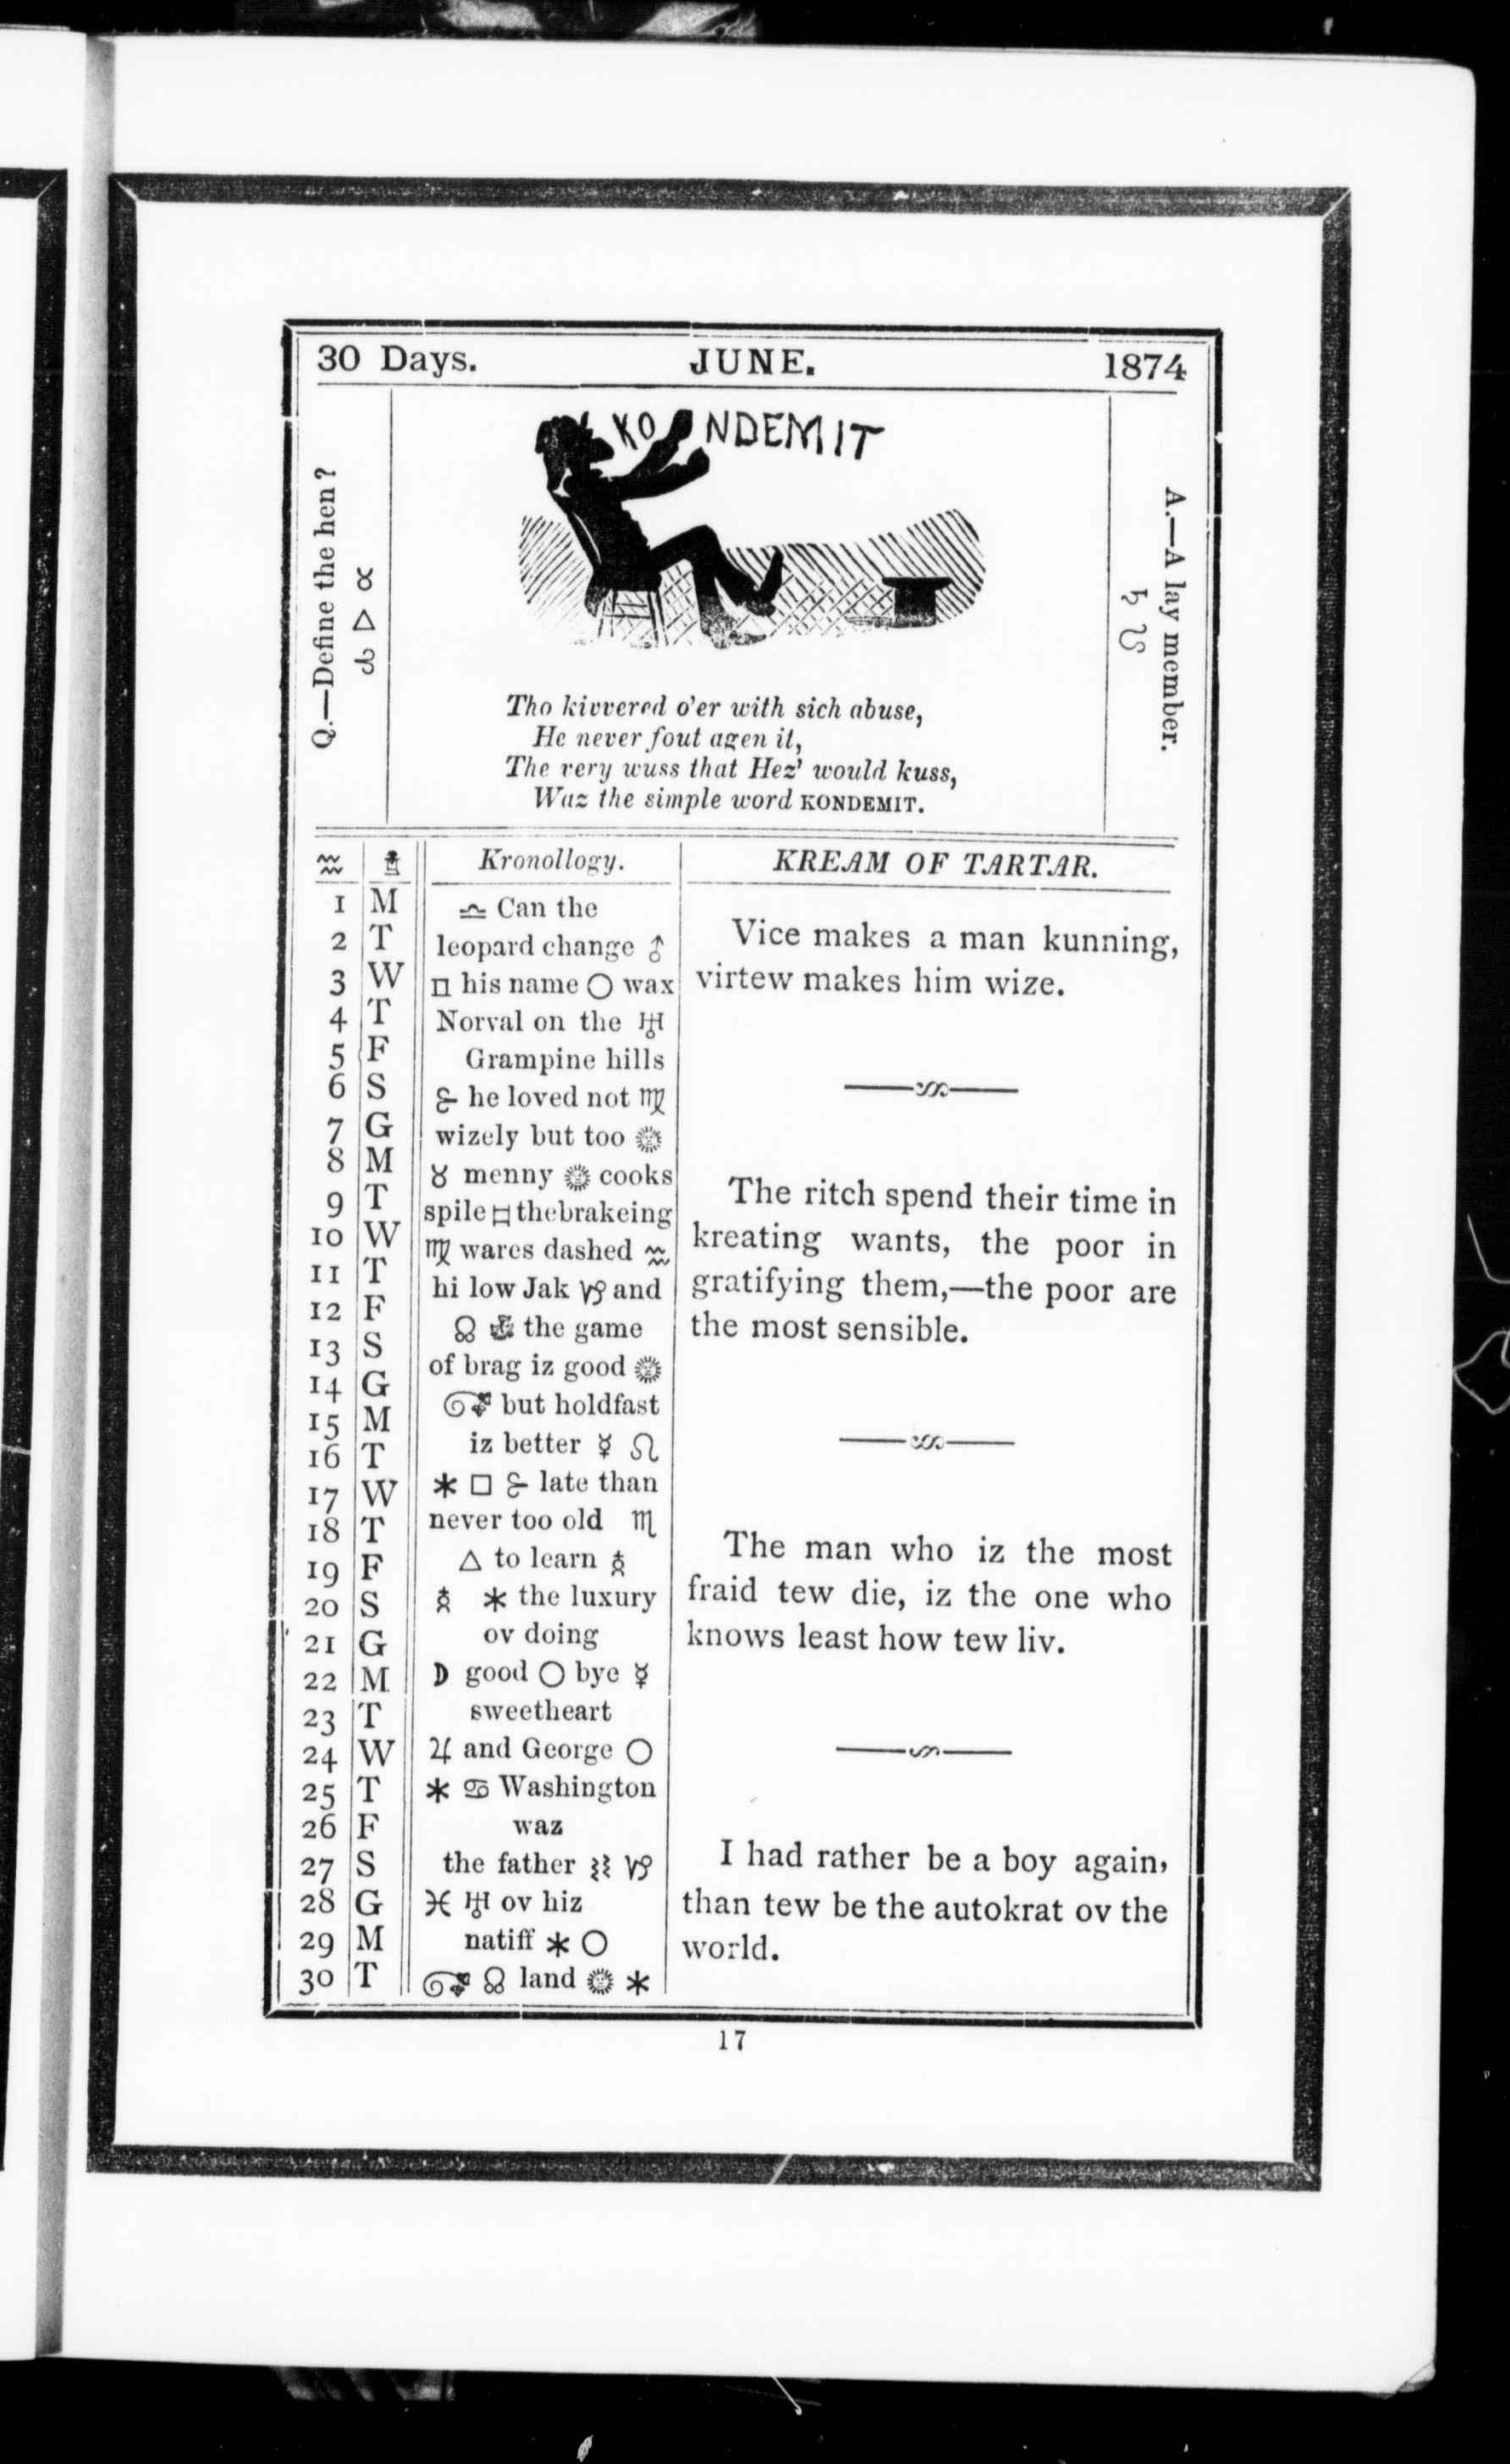 30 Days. JUNE. 1874
Q.—Define the hen?
☋ △ ☌
KONDEMIT
A.—A lay member.
♄ ☋
Tho kivvered o'er with sich abuse,
He never fout agen it,
The very wuss that Hez' would kuss,
Waz the simple word KONDEMIT.
♒ Kronollogy.
1 M ♎ Can the
2 T leopard change ♂
3 W □ his name ○ wax
4 T Norval on the ♅
5 F Grampine hills
6 S he loved not ♍
7 G wizely but too ☀
8 M ♉ menny ☀ cooks
9 T spile thebrakeing
10 W ♍ wares dashed ♒
11 T hi low Jak ♑ and
12 F ☊ the game
13 S of brag iz good ☀
14 G but holdfast
15 M iz better ☿ ♌
16 T * □ late than
17 W never too old ♏
18 T △ to learn
19 F * the luxury
20 S ov doing
21 G ☽ good ○ bye ☿
22 M sweetheart
23 T ♃ and George ○
24 W * ♋ Washington
25 T waz
26 F the father ♑
27 S ♓ ♅ ov hiz
28 G natiff * ○
29 M ☊ land ☀ *
30 T
KREAM OF TARTAR.
Vice makes a man kunning,
virtew makes him wize.
The ritch spend their time in
kreating wants, the poor in
gratifying them,—the poor are
the most sensible.
The man who iz the most
fraid tew die, iz the one who
knows least how tew liv.
I had rather be a boy again,
than tew be the autokrat ov the
world.
17